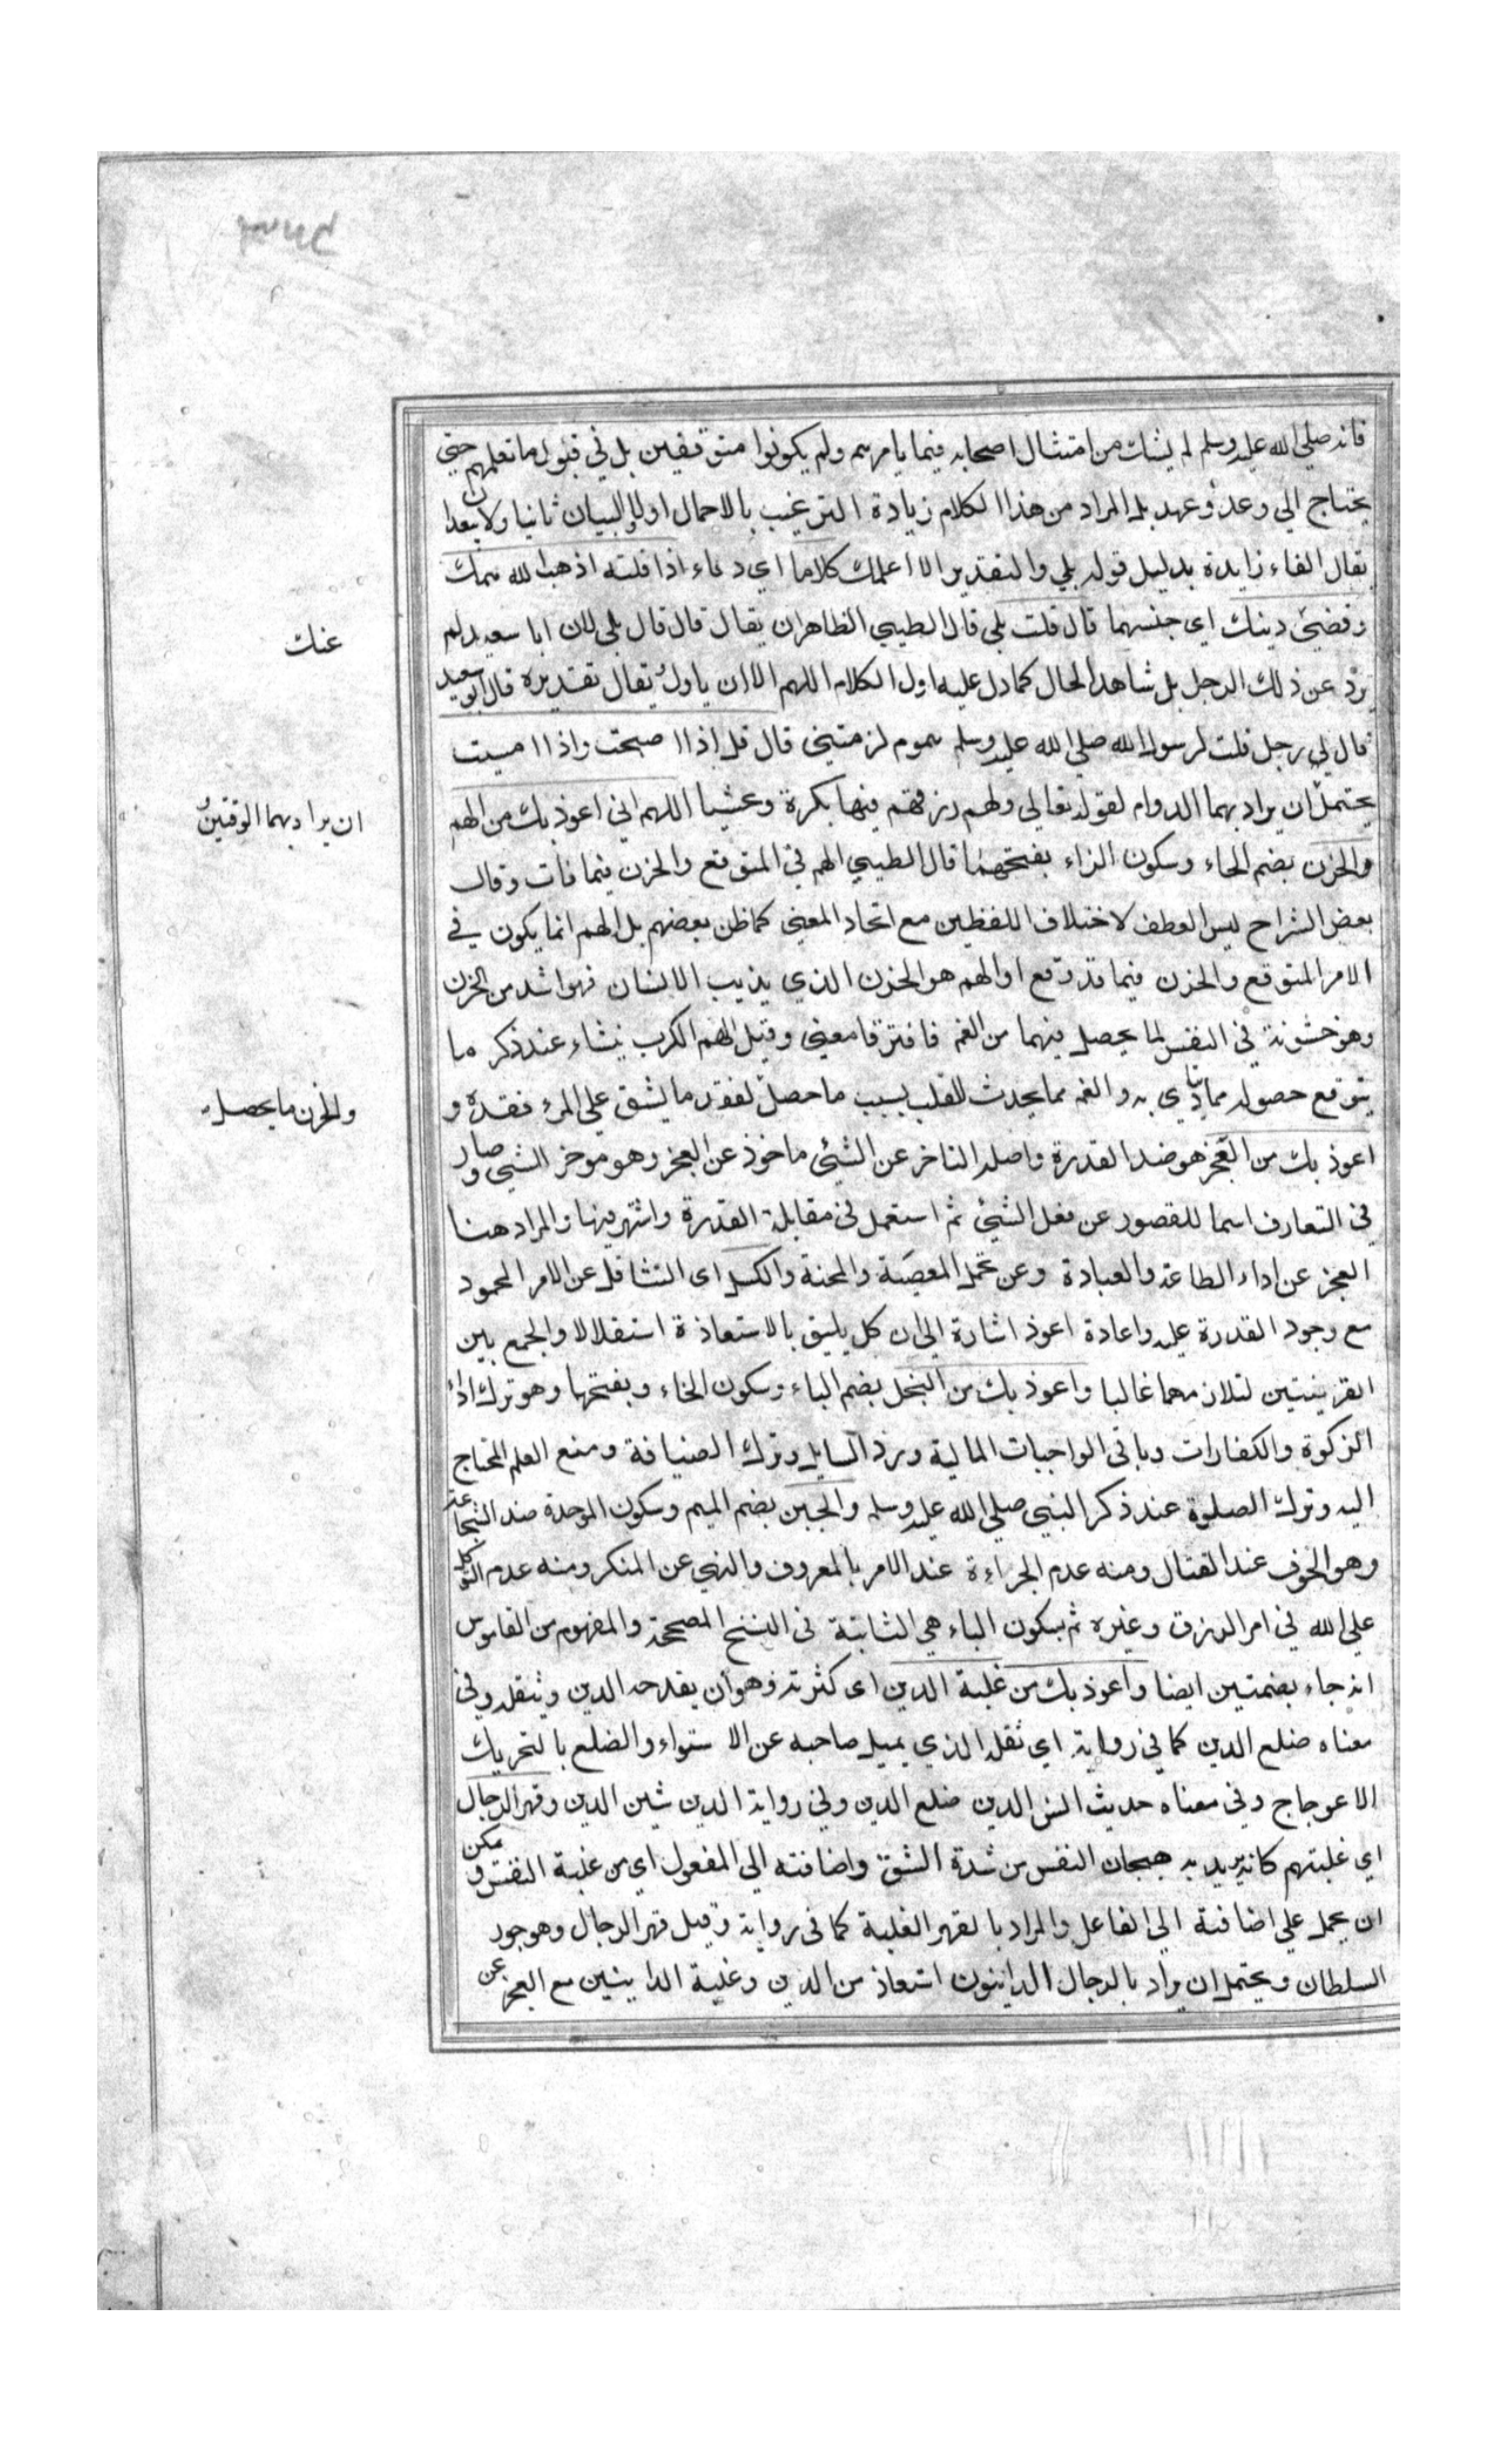 فانه صلي الله عليه وسلم لم يشك من امتثال اصحابه فيما يامرهم ولم يكونوا متوقفين بل في قبول ما تعلمهم حتي
يحتاج الي وعد وعهد بل المراد من هذا الكلام زيادة الترغيب بالاجمال اولا والبيان ثانيا ولا يبعد ان
يقال الفاء زايدة بدليل قوله بلي والتقدير الا اعلمك كلاما اي دعاء اذا قلته اذهب الله همك
عنك
وقضي دينك اي جنسهما قال قلت بلي قال الطيبي الظاهر ان يقال قال قال بلي لان ابا سعيد لم
يرو عن ذلك الرجل بل شاهد الحال كما دل عليه اول الكلام اللهم الا ان ياول يقال تقديره قال ابو سعيد
قال لي رجل قلت لرسول الله صلي الله عليه وسلم هموم لزمتني قال قل اذا اصبحت واذا امسيت
ان يراد بهما الوقتين
يحتمل ان يراد بهما الدوام لقوله تعالي ولهم رزقهم فيها بكرة وعشيا اللهم اني اعوذ بك من الهم
والحزن بضم الحاء وسكون الزاء بفتحهما قال الطيبي الهم في المتوقع والحزن فيما فات وقال
بعض الشراح ليس العطف لاختلاف اللفظين مع اتحاد المعني كما ظن بعضهم بل الهم انما يكون في
الامر المتوقع والحزن فيما قد وقع او الهم هو الحزن الذي يذيب الانسان فهو اشد من الحزن
وهو خشونة في النفس لما يحصل فيهما من الغم فافترقا معني وقيل الهم الكرب ينشاء عند ذكر ما
والحزن ما يحصل
يتوقع حصوله مما يتاذي به والغم مما يحدث للقلب بسبب ما حصل لفقد ما يشق علي المرء فقده و
اعوذ بك من العجز هو ضد القدرة واصله التاخر عن الشيئ ماخوذ عن العجز وهو موخر الشيئ وصار
في التعارف اسما للقصور عن فعل الشيئ ثم استعمل في مقابلة القدرة واشتهر فيها والمراد هنا
العجز عن اداء الطاعة والعبادة وعن تحمل المصيبة والمحنة والكسل اي التثاقل عن الامر المحمود
مع وجود القدرة عليه واعادة اعوذ اشارة الي ان كل يليق بالاستعاذة استقلالا والجمع بين
القرينتين لتلازمهما غالبا واعوذ بك من البخل بضم الباء وسكون الخاء وبفتحها وهو ترك اداء
الزكوة والكفارات وباقي الواجبات المالية ورد السايل وترك الضيافة ومنع العلم المحتاج
اليه وترك الصلوة عند ذكر النبي صلي الله عليه وسلم والجبن بضم الميم وسكون الموحدة ضد الشجاعة
وهو الخوف عند القتال ومنه عدم الجراءة عند الامر بالمعروف والنهي عن المنكر ومنه عدم التوكل
علي الله في امر الرزق وغيره ثم بسكون الباء هي الثابتة في النسخ المصححة والمفهوم من القاموس
انه جاء بضمتين ايضا واعوذ بك من غلبة الدين اي كثرته وهو ان يفدحه الدين ويثقله وفي
معناه ضلع الدين كما في رواية اي ثقله الذي يميل صاحبه عن الاستواء والضلع بالتحريك
الاعوجاج وفي معناه حديث انس الدين ضلع الدين وفي رواية الدين شين الدين وقهر الرجال
اي غلبتهم كانه يريد به هيجان النفس من شدة الشق واضافته الي المفعول اي من غلبة النفس ويمكن
ان يحمل علي اضافته الي الفاعل والمراد بالقهر الغلبة كما في رواية وقيل قهر الرجال وهو جور
السلطان ويحتمل ان يراد بالرجال الداينون استعاذ من الدين وغلبة الداينين مع العجز عن